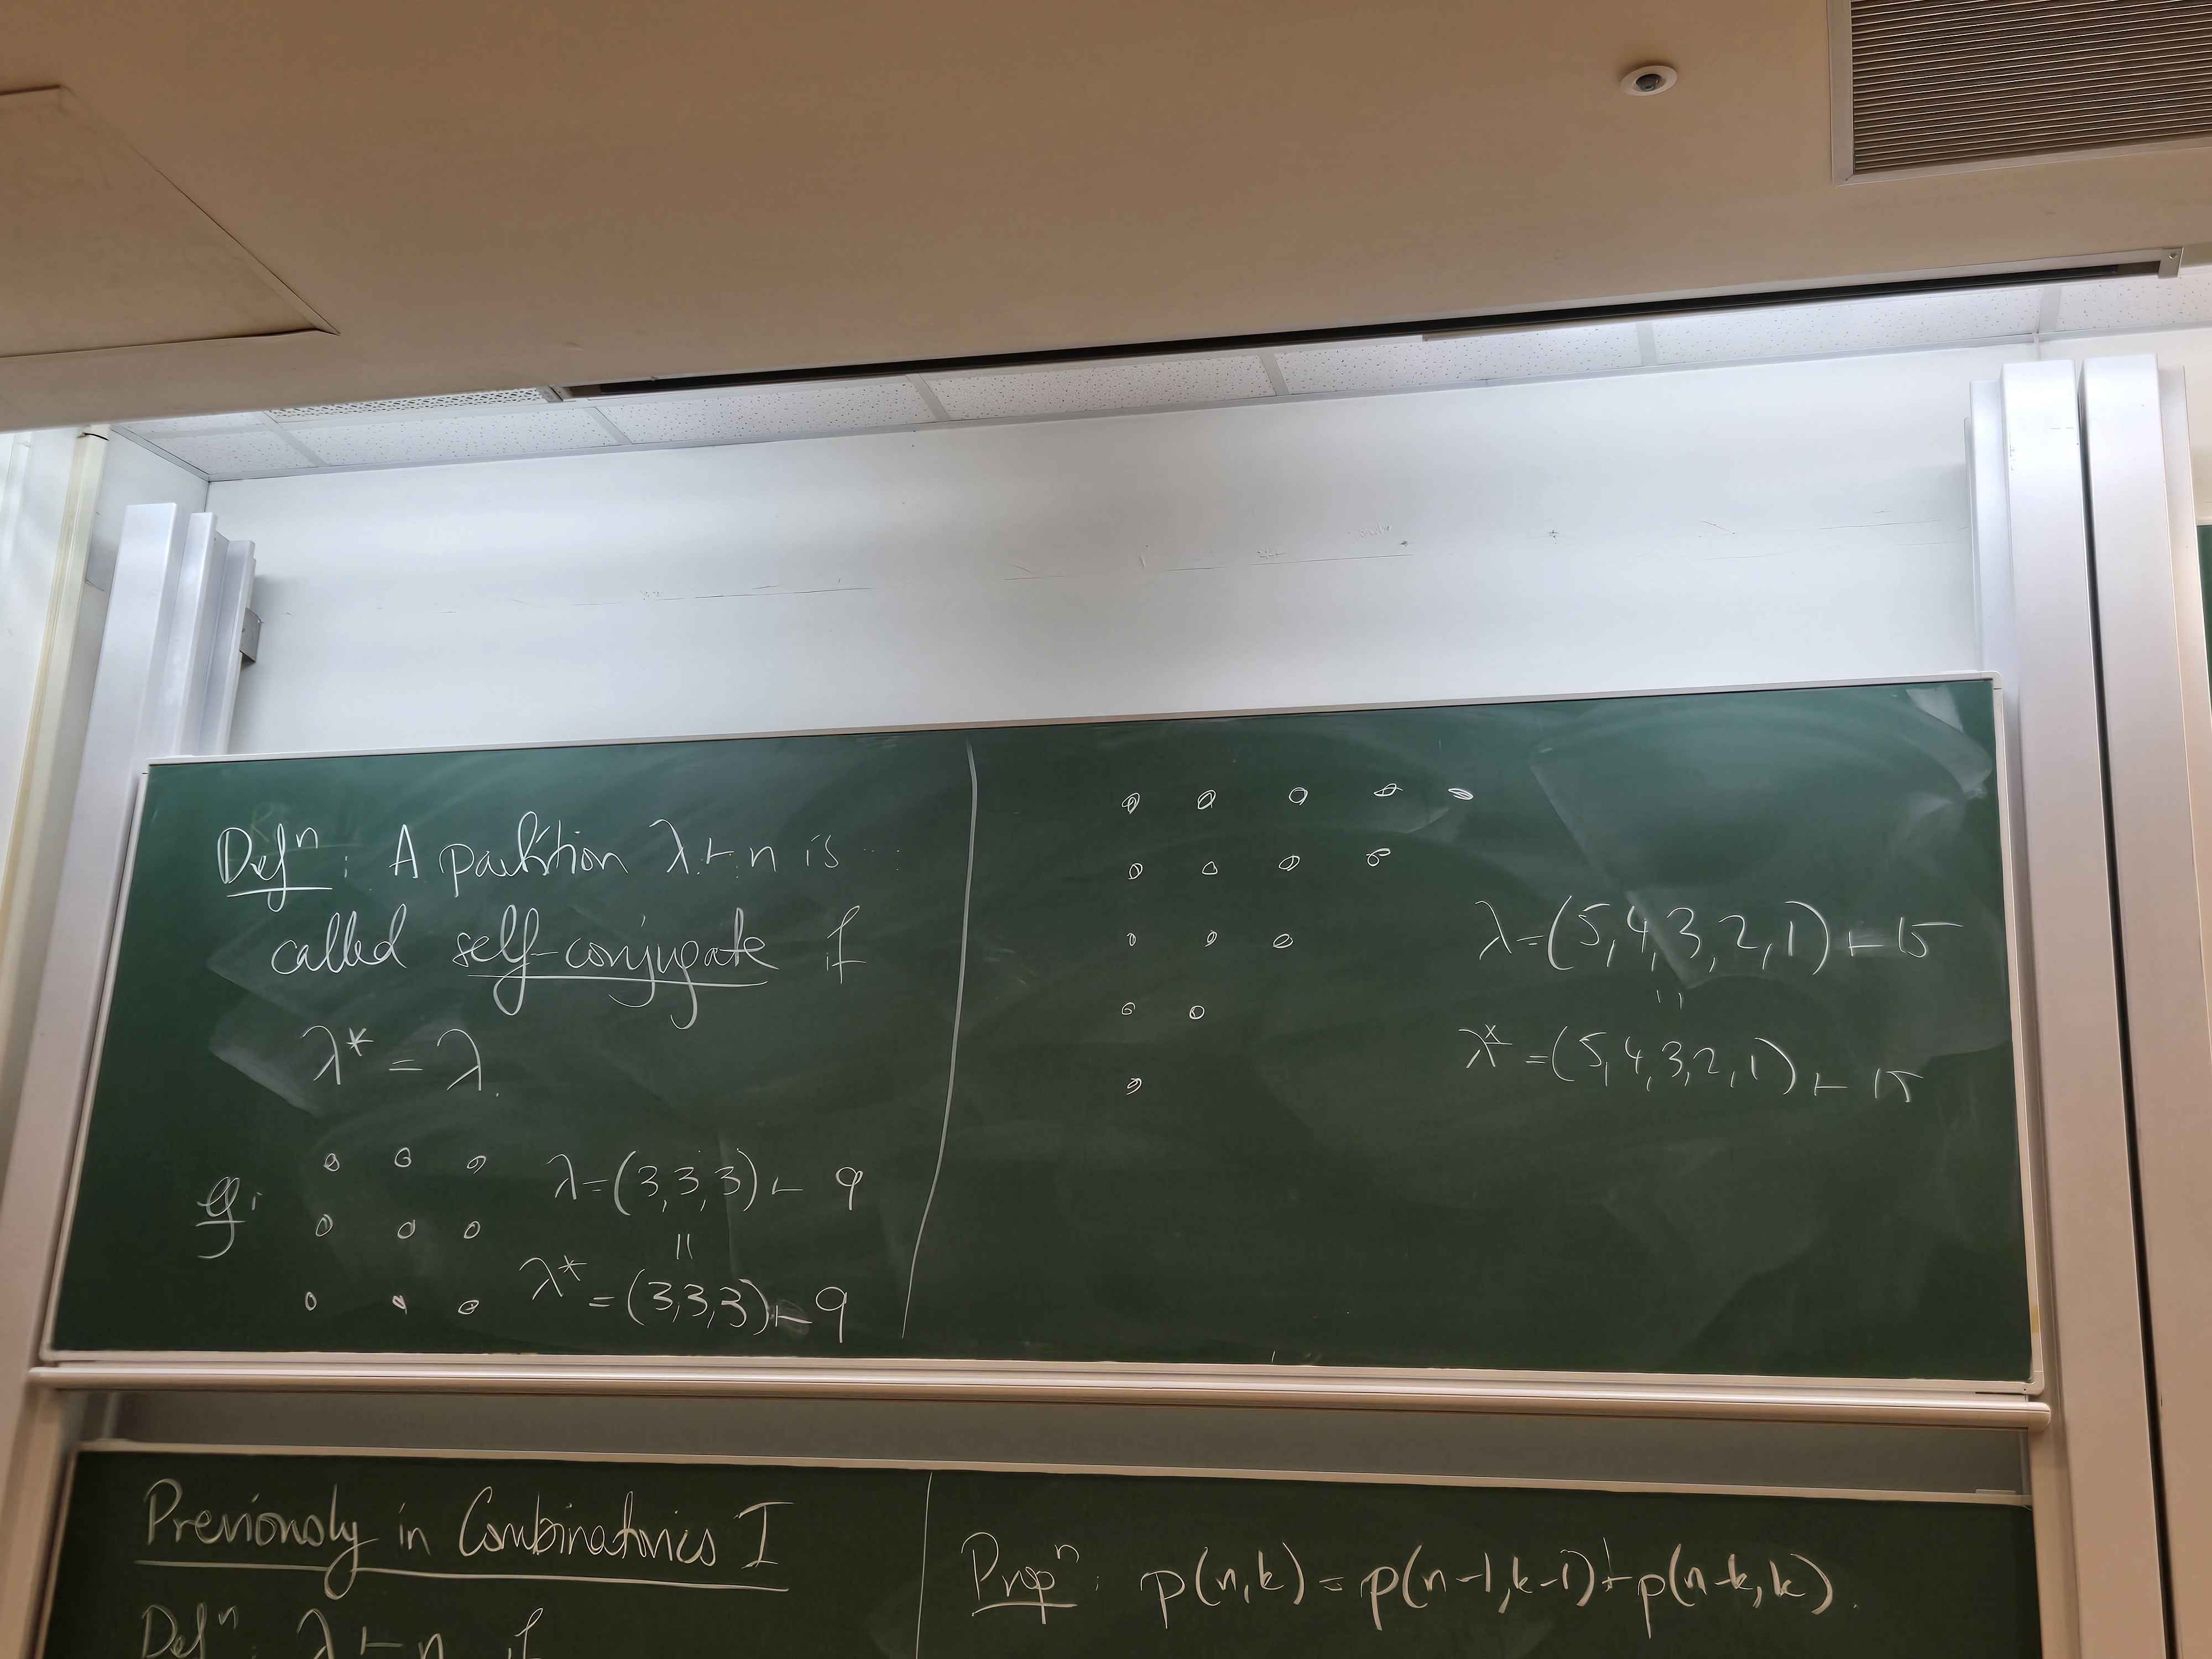 Defⁿ: A partition λ ⊢ n is
called self-conjugate if
λ* = λ.
eg:
λ=(3,3,3) ⊢ 9
=
λ* = (3,3,3) ⊢ 9
λ=(5,4,3,2,1) ⊢ 15
=
λ* =(5,4,3,2,1) ⊢ 15
Previously in Combinatorics I
Defⁿ: λ ⊢ n if
Propⁿ: p(n,k) = p(n-1,k-1)+p(n-k,k).